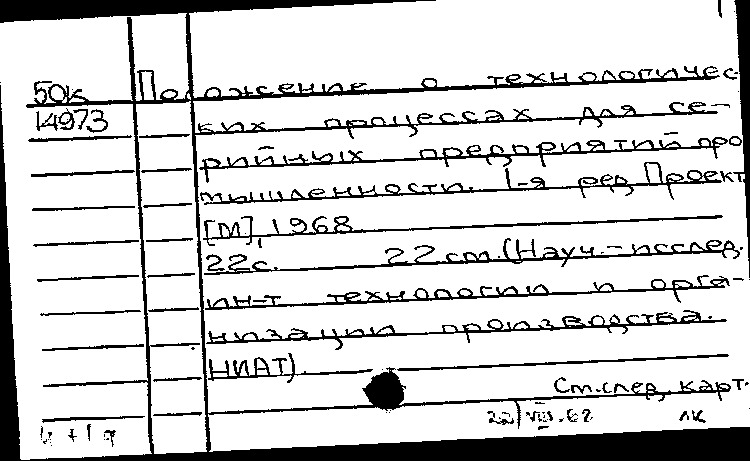 50к Положение о технологичес-
14973 ких процессах для се-
рийных предприятий про
мышленности. 1-я ред. Проект
[М], 1968
22с. 22 см. (Науч.-исслед.
ин-т технологии и орга-
низации производства.
НИАТ).
См. след. карт.
22/VIII.68 ЛК